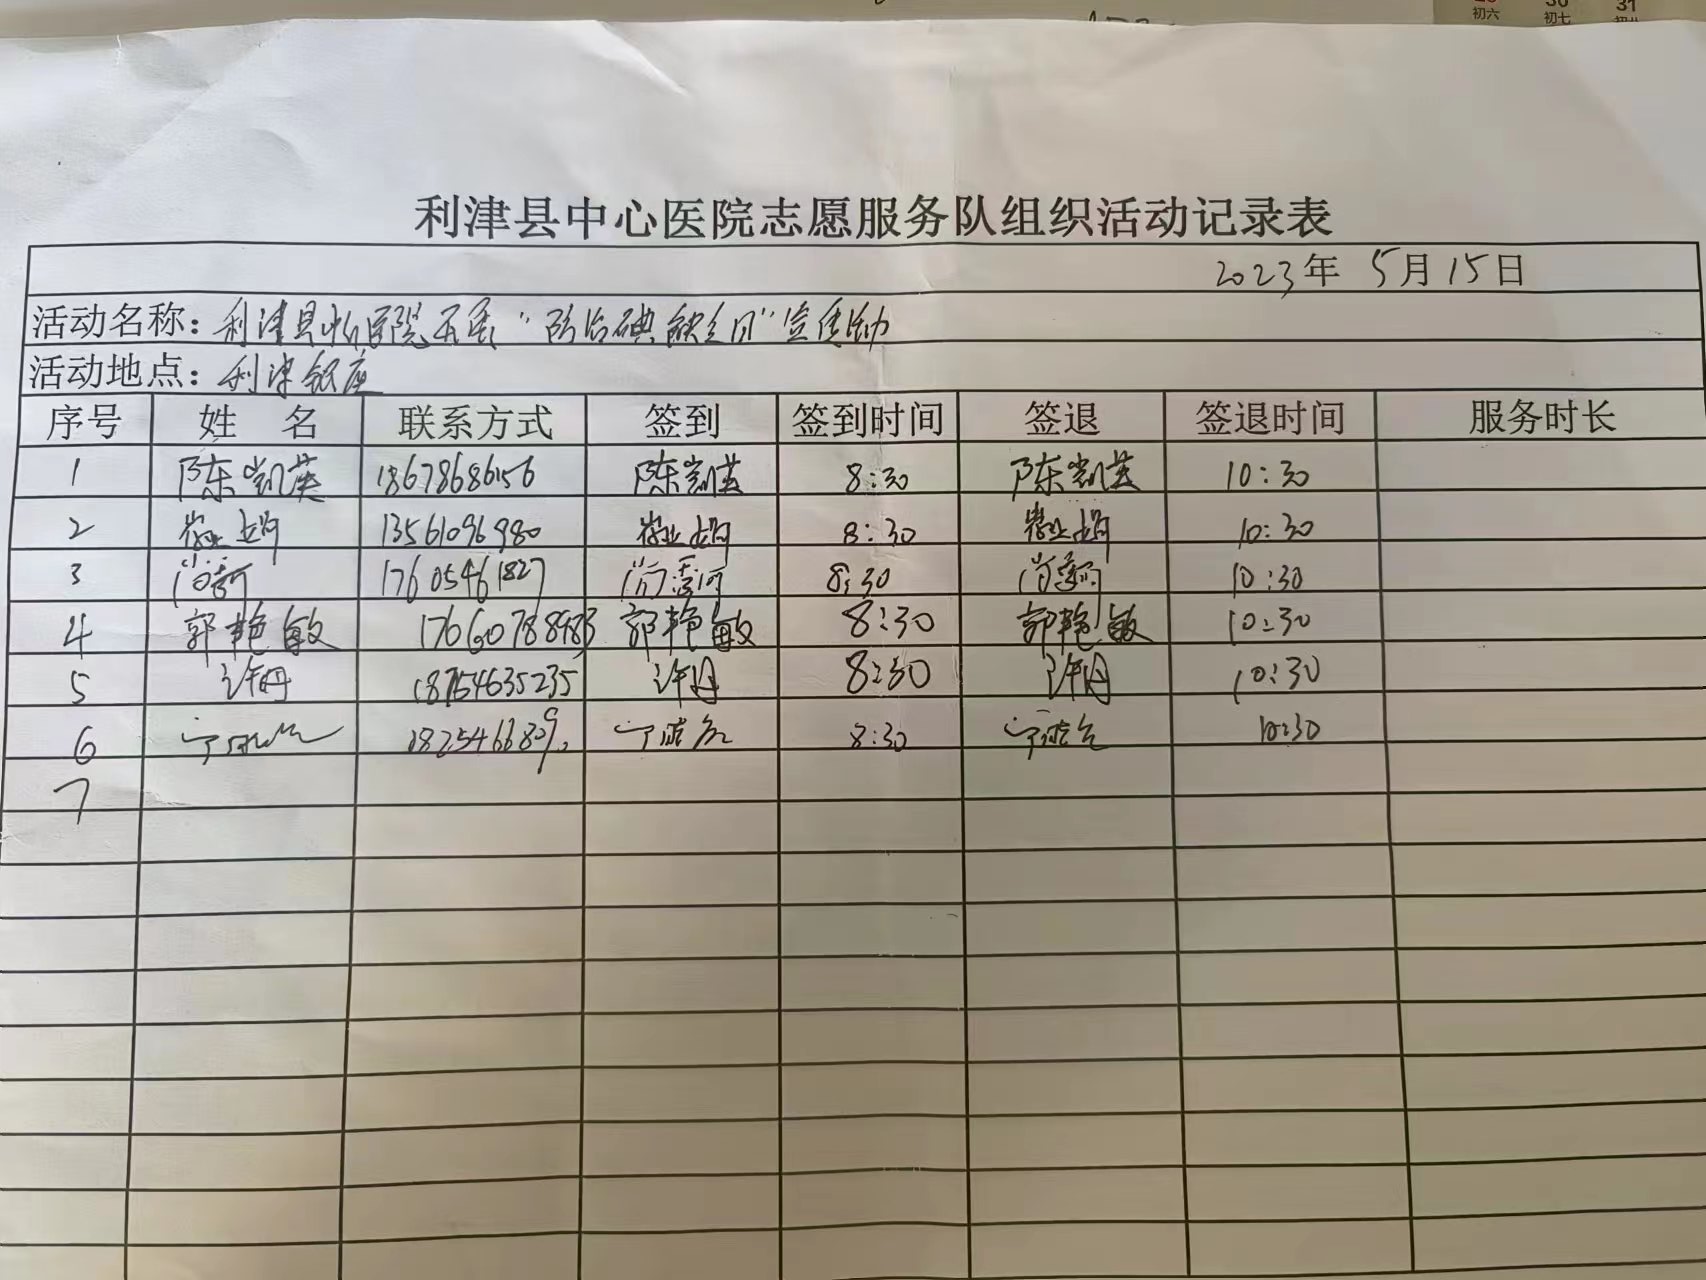 30 31
初六 初七
利津县中心医院志愿服务队组织活动记录表
2023年 5月15日
活动名称：利津县中心医院开展“防治碘缺乏日”宣传活动
活动地点：利津银座
序号 姓 名 联系方式 签到 签到时间 签退 签退时间 服务时长
1 陈凯英 18678686156 陈凯英 8:30 陈凯英 10:30
2 13561096980 8:30 10:30
3 17605461827 8:30 10:30
4 郭艳敏 17660788483 郭艳敏 8:30 郭艳敏 10:30
5 许丹 18754635235 许丹 8:30 许丹 10:30
6 8:30 10:30
7